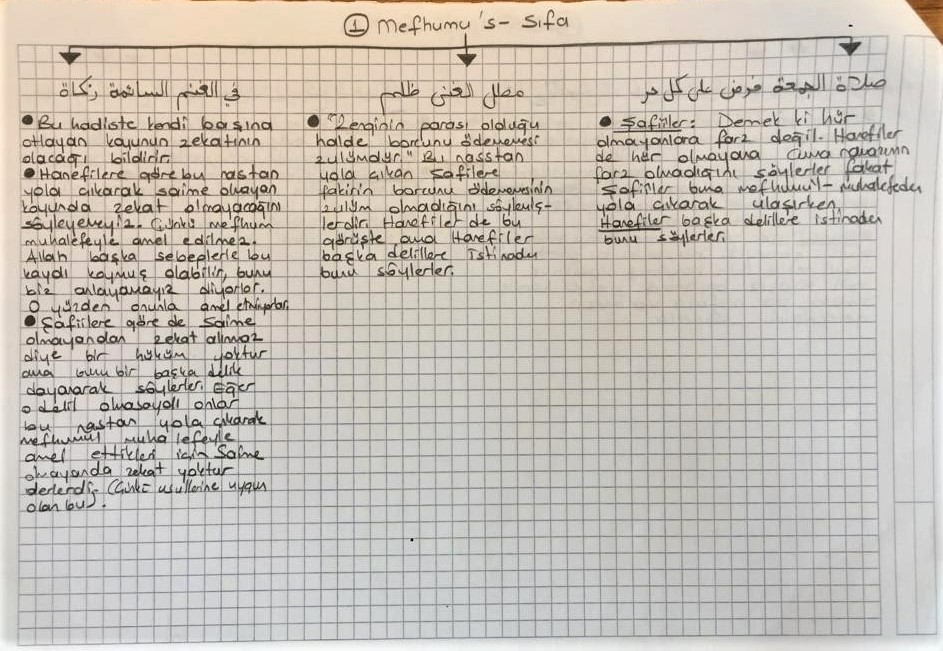 ① Mefhumu's- Sıfa
في الغنم السائمة زكاة
● Bu hadiste kendi başına
otlayan koyunun zekatının
olacağı bildirir.
● Hanefilere göre bu nastan
yola çıkarak saime olmayan
koyunda zekat olmayacağını
söyleyemeyiz. Çünkü mefhum
muhalefeyle amel edilmez.
Allah başka sebeplerle bu
kaydı koymuş olabilir, bunu
biz anlayamayız diyorlar.
O yüzden onunla amel etmiyorlar.
● Şafiilere göre de Saime
olmayandan zekat alınmaz
diye bir hüküm yoktur
ama bunu bir başka delile
dayanarak söylerler. Eğer
o delil olmasaydı onlar
bu nastan yola çıkarak
mefhumul muhalefeyle
amel ettikleri için Saime
olmayanda zekat yoktur
derlerdi. (Çünkü usullerine uygun
olan bu).
مطل الغنى ظلم
● "Zenginin parası olduğu
halde borcunu ödememesi
zulümdür." Bu nasstan
yola çıkan Şafilere
fakirin borcunu ödememesinin
zulüm olmadığını söylemiş-
lerdir. Hanefiler de bu
görüşte ama Hanefiler
başka delillere istinaden
bunu söylerler.
صلاة الجمعة فرض على كل حر
● Şafiiler: Demek ki hür
olmayanlara farz değil. Hanefiler
de hür olmayana Cuma namazının
farz olmadığını söylerler fakat
Şafiiler buna mefhumul- muhalefeden
yola çıkarak ulaşırken,
Hanefiler başka delillere istinaden
bunu söylerler.